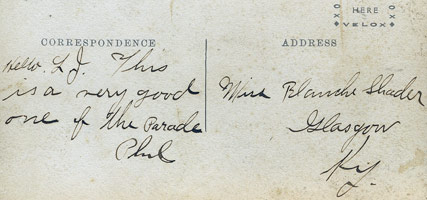 HERE
VELOX
CORRESPONDENCE
ADDRESS
Hello. L J. This
is a very good
one of the Parade
Phil
Miss Blanche Shader
Glasgow
Ky.